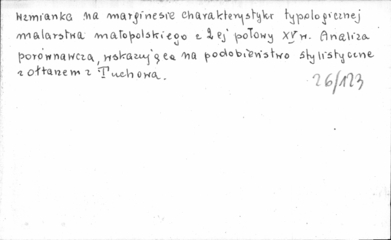 wzmianka na marginesie charakterystyki typologicznej
malarstwa małopolskiego z 2ej połowy XV w. Analiza
porównawcza, wskazująca na podobieństwo stylistyczne
z ołtarzem z Tuchowa.
26/123